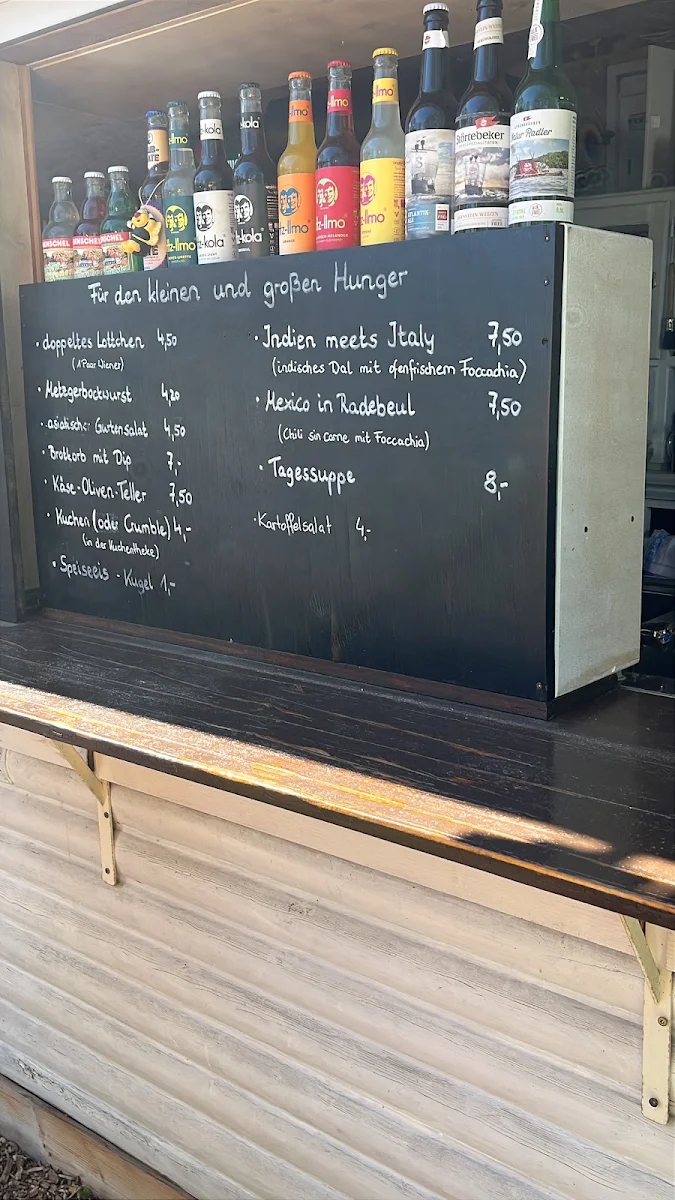 kola
kola
z-llmo
llmo
llmo
NSCHEL
NSCHEL
z-llmo
z-kola
z-kola
z-llmo
z-llmo
z-llmo
Störtebeker
Natur Radler
Für den kleinen und großen Hunger
· doppeltes Lottchen 4,50
(1 Paar Wiener)
· Metzgerbockwurst 4,20
· asiatischer Gurkensalat 4,50
· Brotkorb mit Dip 7,-
· Käse-Oliven-Teller 7,50
· Kuchen (oder Crumble) 4,-
(in der Kuchentheke)
· Speiseeis - Kugel 1,-
· Indien meets Italy 7,50
(indisches Dal mit ofenfrischem Foccachia)
· Mexico in Radebeul 7,50
(Chili sin carne mit Foccachia)
· Tagessuppe 8,-
· Kartoffelsalat 4,-